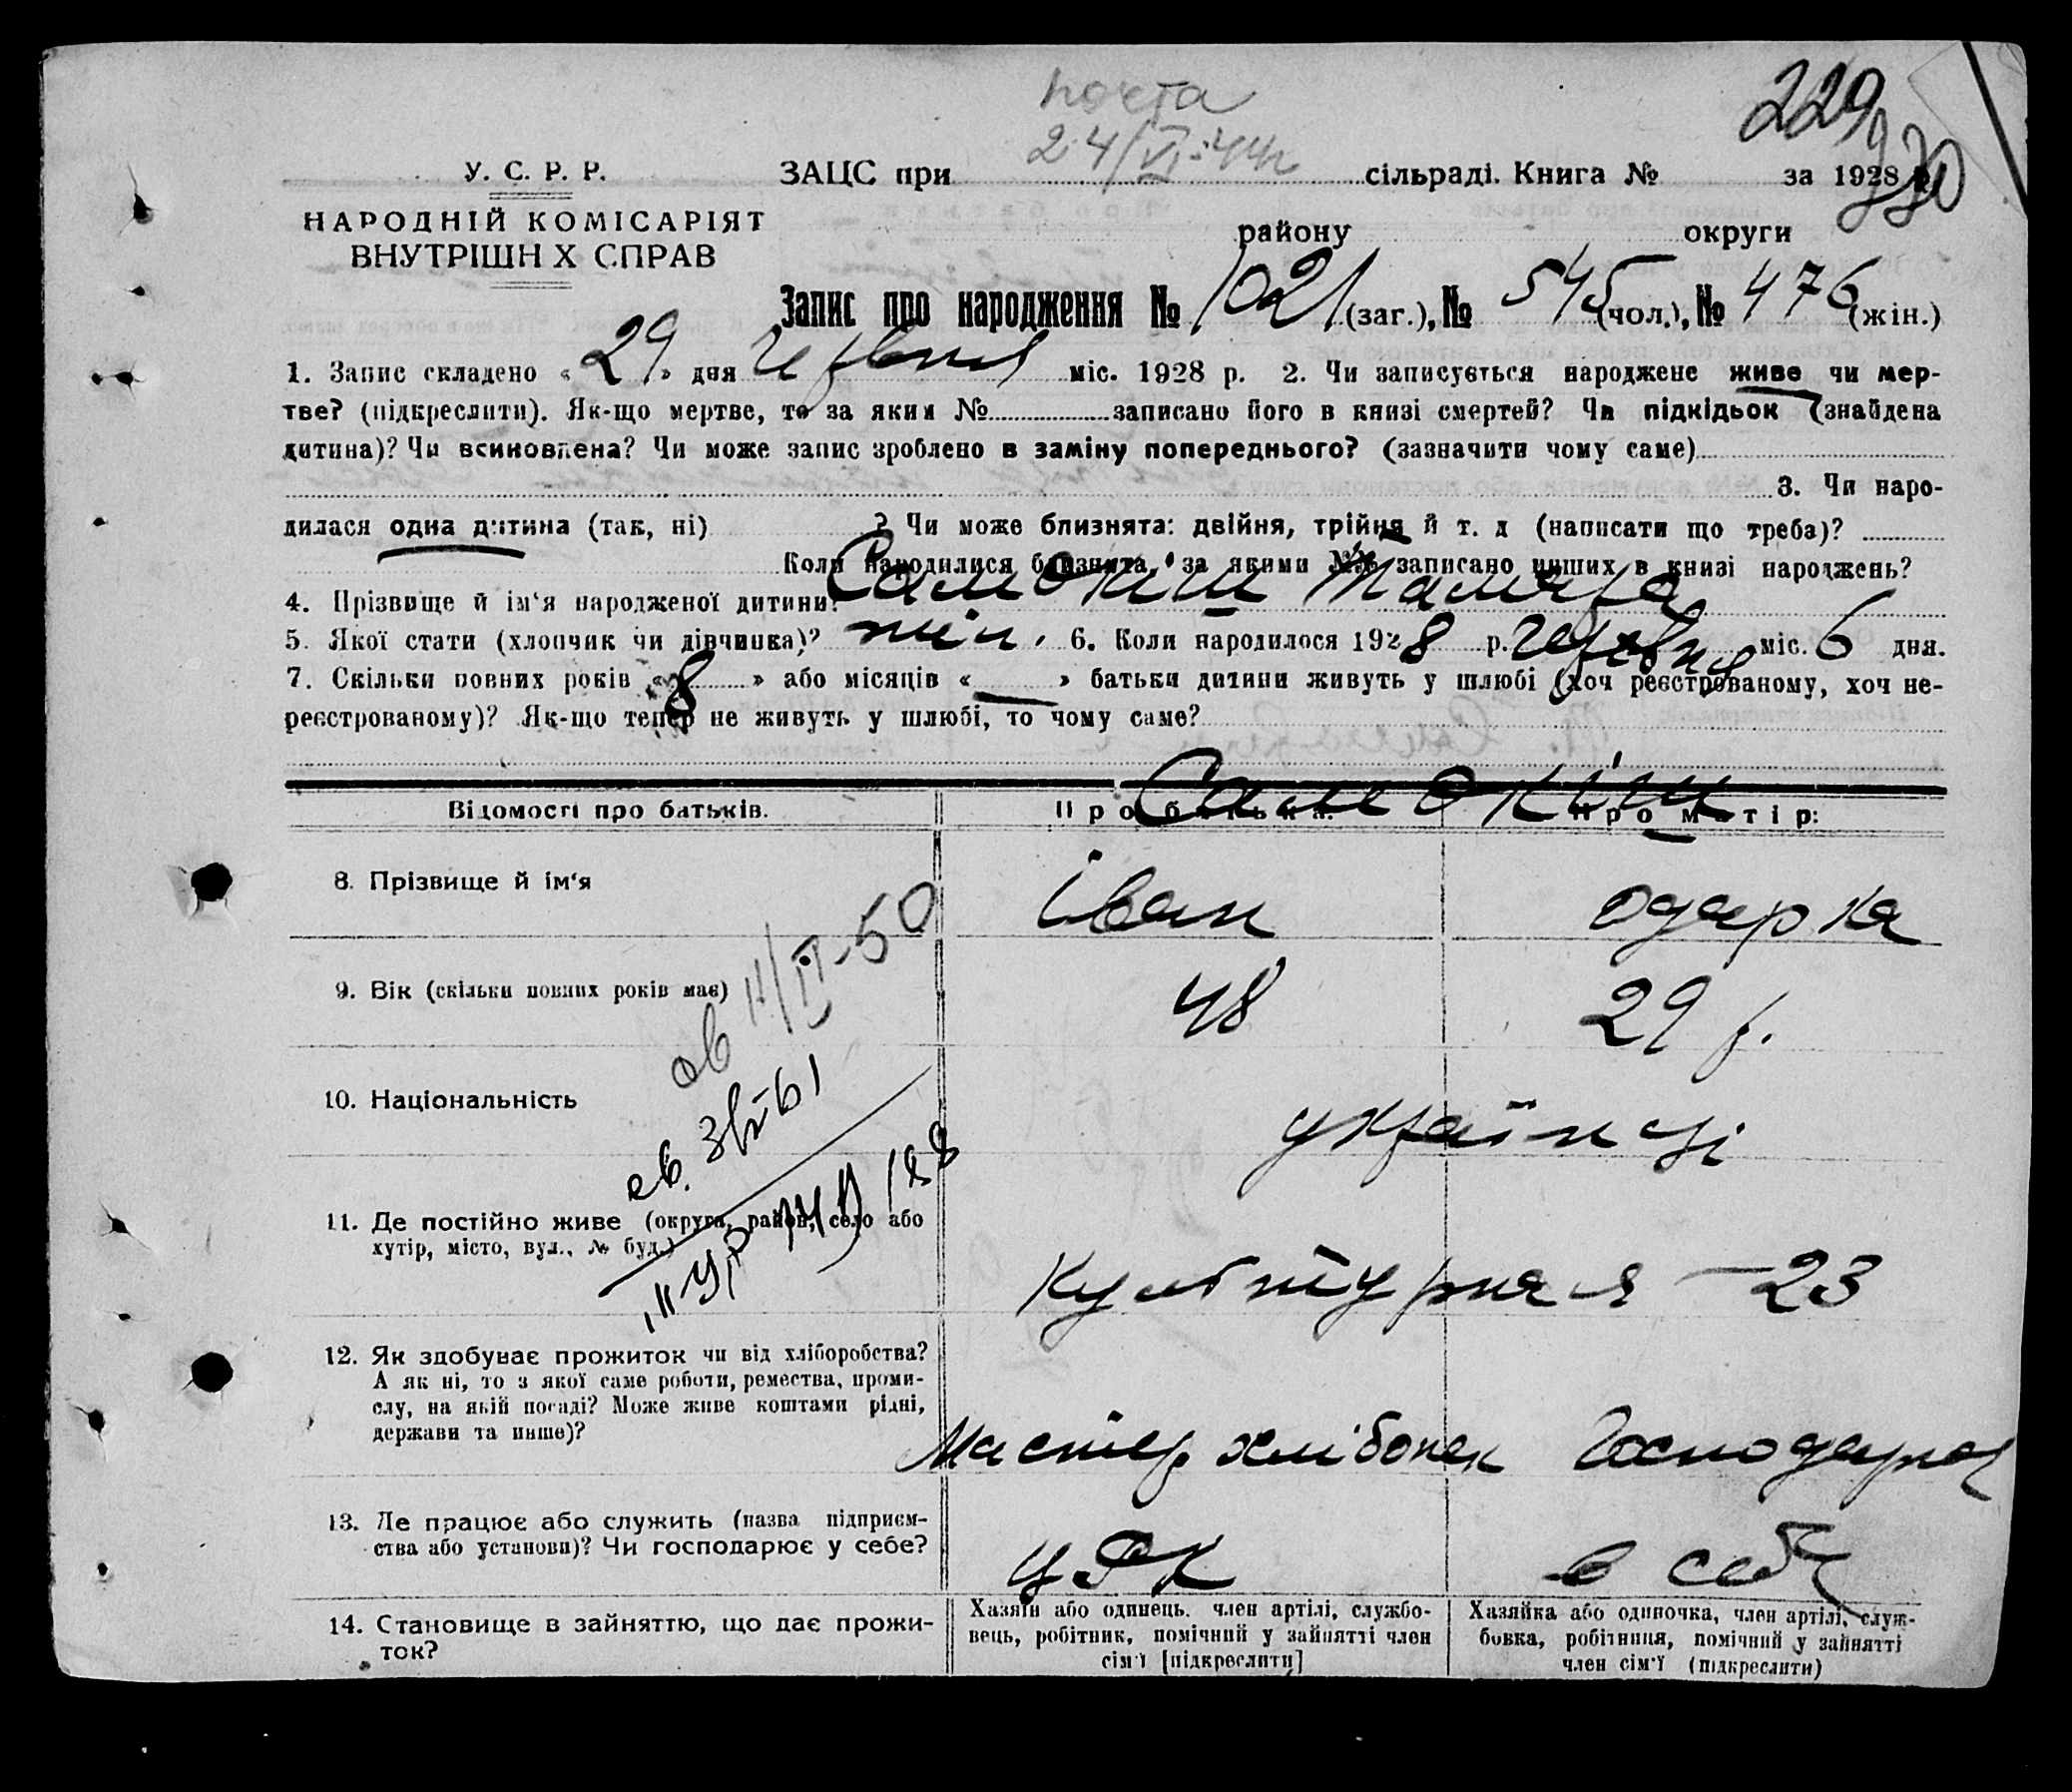 почта
24/VI-44г
229
930
У. С. Р. Р.
ЗАЦС при сільраді. Книга № за 1928 р.
НАРОДНІЙ КОМІСАРІЯТ
ВНУТРІШН Х СПРАВ
району округи
Запис про народження № 1021 (заг.), № 545 (чол.), № 476 (жін.)
1. Запис складено « 29 » дня червня міс. 1928 р. 2. Чи записується народжене живе чи мер-
тве? (підкреслити). Як-що мертве, то за яким № записано його в книзі смертей? Чи підкідьок (знайдена
дитина)? Чи всиновлена? Чи може запис зроблено в заміну попереднього? (зазначити чому саме)
3. Чи наро-
дилася одна дитина (так, ні) ? Чи може близнята: двійня, трійня й т. д (написати що треба)?
Коли народилися близнята, за якими №№ записано инших в книзі народжень?
4. Прізвище й ім'я народженої дитини? Самокиш Тамара
5. Якої стати (хлопчик чи дівчинка)? жін. 6. Коли народилося 1928 р. червня міс. 6 дня.
7. Скільки повних років « 8 » або місяців « — » батьки дитини живуть у шлюбі (хоч реєстрованому, хоч не-
реєстрованому)? Як-що тепер не живуть у шлюбі, то чому саме?
Самокиш
Відомості про батьків. Про батька: Про матір:
8. Прізвище й ім'я Іван Одарка
9. Вік (скільки повних років має) 48 29 р.
10. Національність українці
11. Де постійно живе (округа, район, село або
хутір, місто, вул., № буд.)
Культурная — 23
12. Як здобуває прожиток чи від хліборобства?
А як ні, то з якої саме роботи, ремества, проми-
слу, на якій посаді? Може живе коштами рідні,
держави та инше)?
Мастер хлібопек Господарка
13. Де працює або служить (назва підприєм-
ства або установи)? Чи господарює у себе?
ЦРК в себе
14. Становище в зайняттю, що дає прожи-
ток?
Хазяїн або одинець, член артілі, службо-
вець, робітник, помічний у зайнятті член
сім'ї [підкреслити]
Хазяйка або одиночка, член артілі, служ-
бовка, робітниця, помічний у зайнятті
член сім'ї (підкреслити)